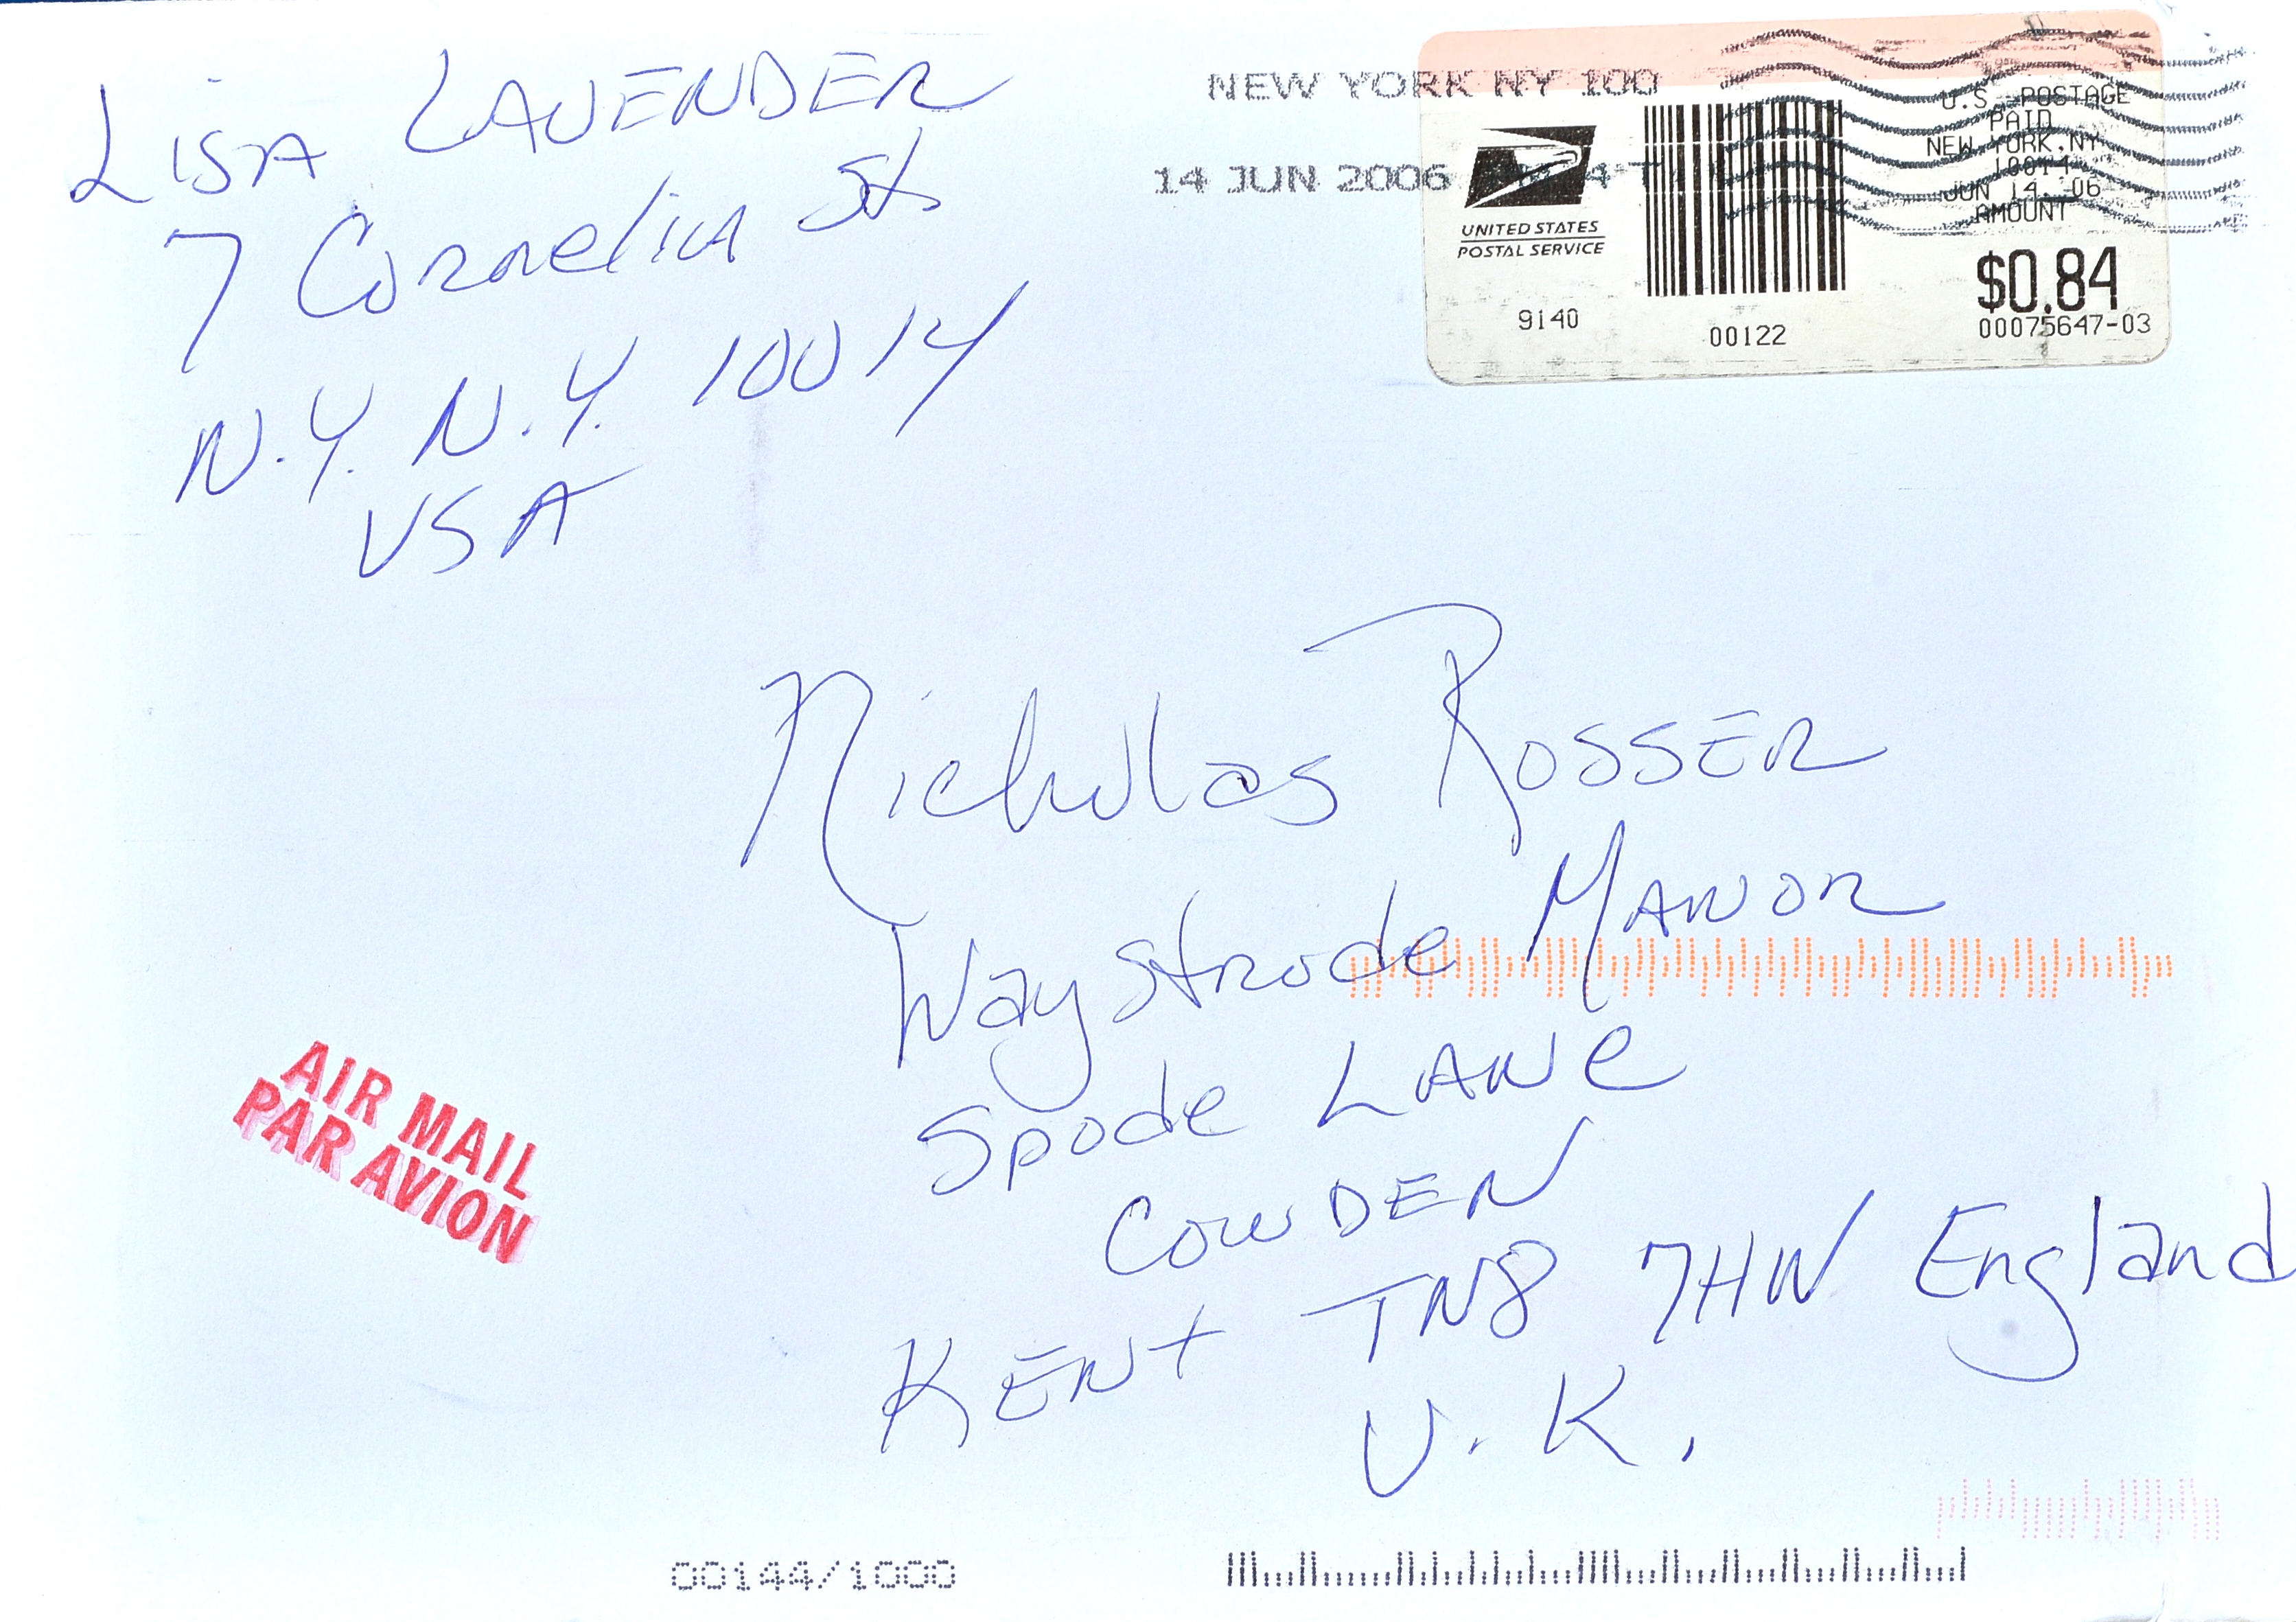 Lisa LAVENDER
7 Cornelia St
N.Y. N.Y. 10014
USA
NEW YORK NY 100
14 JUN 2006
UNITED STATES
POSTAL SERVICE
9140
00122
U.S. POSTAGE
PAID
NEW YORK, NY
10014
JUN 14, 06
AMOUNT
$0.84
00075647-03
Nicholas ROSSER
Waystrode MANOR
Spode LANe
COWDEN
KENt TN8 7HW England
U.K.
AIR MAIL
PAR AVION
00144/1000